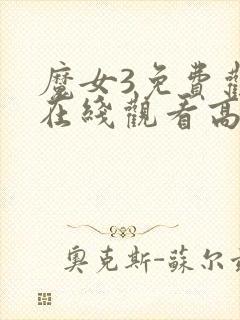 魔女3免費觀
在綫觀看高
奧克斯-蘇尔